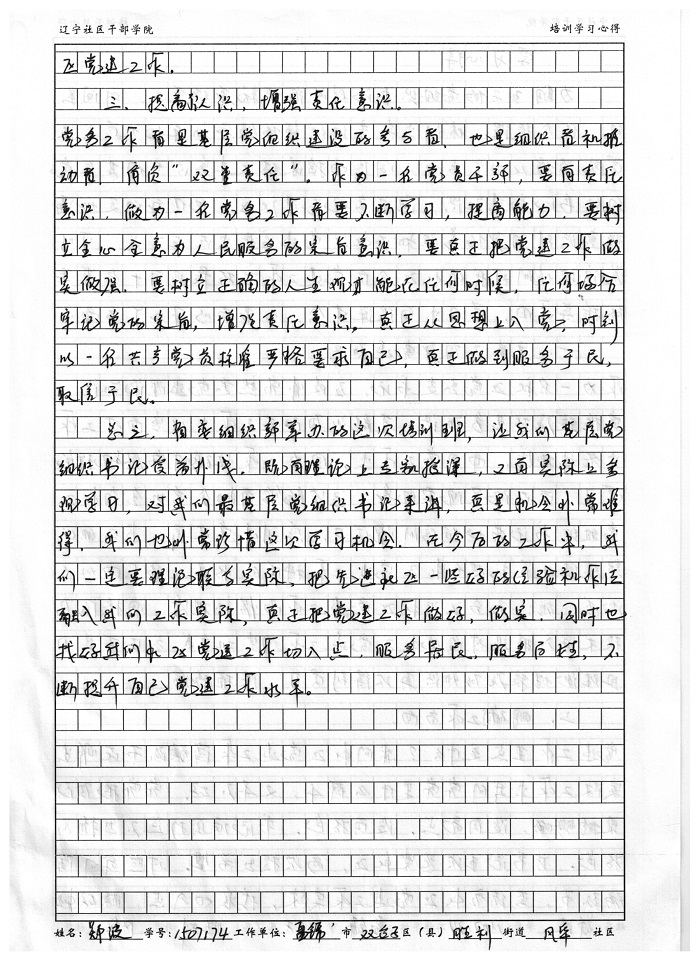 辽宁社区干部学院 培训学习心得
区党建工作。
三、提高认识，增强责任意识。
党务工作者是基层党组织建设的参与者，也是组织者和推
动者，肩负“双重责任”。作为一名党员干部，要有责任
意识，做为一名党务工作者要不断学习，提高能力，要树
立全心全意为人民服务的宗旨意识，要真正把党建工作做
实做强。要树立正确的人生观才能在任何时候，任何场合
牢记党的宗旨，增强责任意识。真正从思想上入党，时刻
以一名共产党员标准严格要求自己，真正做到服务于民，
取信于民。
总之，市委组织部举办的这次培训班，让我们基层党
组织书记受益非浅。既有理论上专家授课，又有实际上参
观学习，对我们最基层党组织书记来讲，真是机会非常难
得，我们也非常珍惜这次学习机会。在今后的工作中，我
们一定要理论联系实际，把先进社区一些好的经验和作法
融入我们工作实际，真正把党建工作做好，做实。同时也
找好我们社区党建工作切入点，服务居民，服务居民，不
断提升自己党建工作水平。
姓名：郑波 学号：1507174 工作单位：盘锦 市 双台子区（县） 胜利 街道 社区